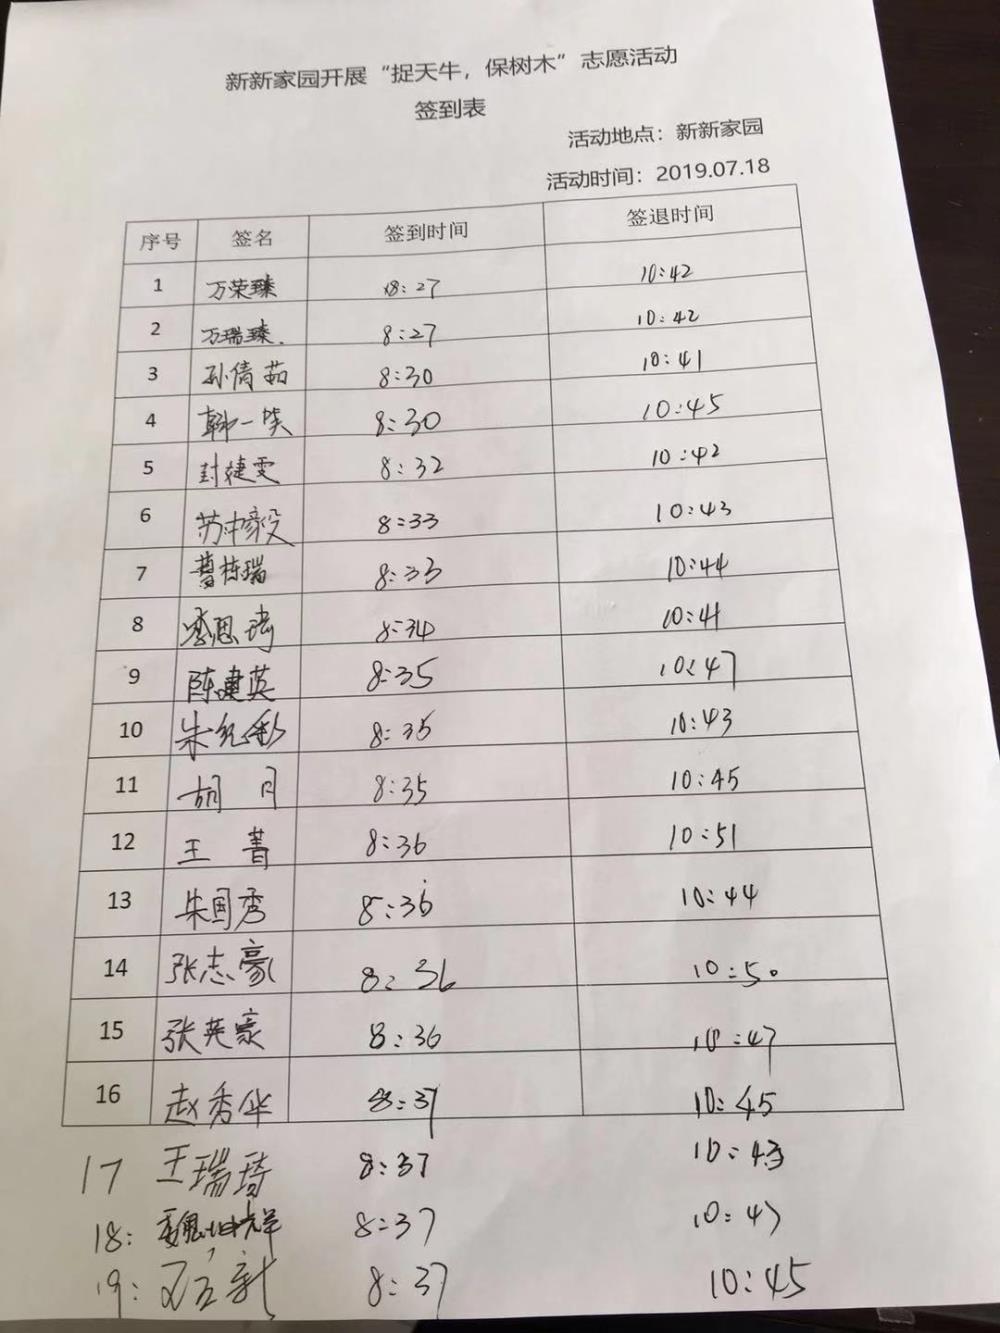 新新家园开展“捉天牛，保树木”志愿活动
签到表
活动地点：新新家园
活动时间：2019.07.18
序号 签名 签到时间 签退时间
1 万荣臻 8:27 10:42
2 万瑞臻. 8:27 10:42
3 孙倩茹 8:30 10:41
4 韩一笑 8:30 10:45
5 封婕雯 8:32 10:42
6 苏中毅 8:33 10:43
7 曹哲瑞 8:33 10:44
8 李思琦 8:34 10:41
9 陈建英 8:35 10:47
10 朱 8:35 10:43
11 胡月 8:35 10:45
12 王菁 8:36 10:51
13 朱国秀 8:36 10:44
14 张志豪 8:36 10:50
15 张英豪 8:36 10:47
16 赵秀华 8:37 10:45
17 王瑞琦 8:37 10:43
18: 魏 8:37 10:47
19: 新 8:37 10:45